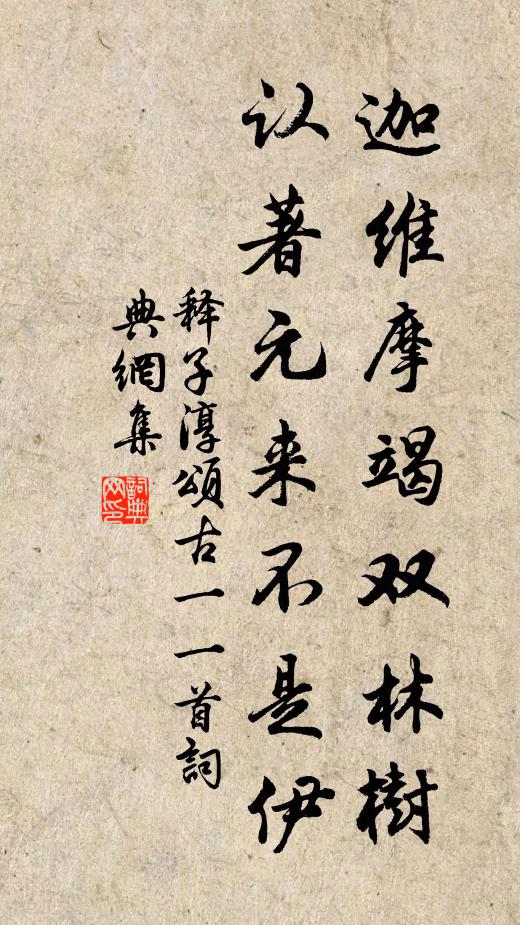 迦维摩竭双林樹
认著元来不是伊
释子淳頌古一一首詞
典網集
詞典
网印